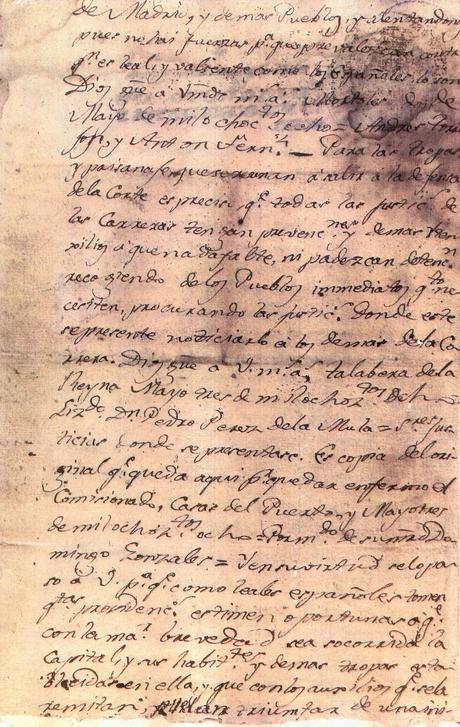 de Madrid, y demas Pueblos y alentandonos
pues no hai fuerzas pª que prevalezcan contra
qn es leal, y valiente como los españoles lo son
Dios gue a Vmds. m.s a.s Mostoles dos de
Mayo de mil ochoctos ocho = Andres Torre
jon, y Anton Hernz. — Para las tropas
y paisanaje que se reunan a salir a la defensa
de la Corte es preciso q.e todas las justic.s de
las Carreras tengan prevenc.nes y demas
xilios a que nada falte, ni padezcan detenc.n
recogiendo de los Pueblos inmediatos qto ne
cesiten, procurando las justic.s donde este
se presente noticiarlo a los demas de la Ca
rrera. Dios gue a V. m.s a.s Talabera de la
Reyna Mayo tres de mil ochoz.tos
Liz.do Dn Pedro Perez de la Mula = S.res Jus
ticias donde se presentare. Es copia del ori
ginal q.e queda aqui p.r quedar enfermo el
Comisionado, Casas del Puerto, y Mayo tres
de mil ochoz.tos ocho = Firm.do de su md Do
mingo Gonzales = Y en su virtud se lo pa
so a V. p.a q.e como leales españoles tomen
q.tas providenc.s estimen oportunas a q.e
con la ma.r brevedad sea socorrida la
Capital, y sus habit.tes y demas tropas esta
blecidas en ella, y que con los auxilios q.e se la
remitan, puedan triumfar de una